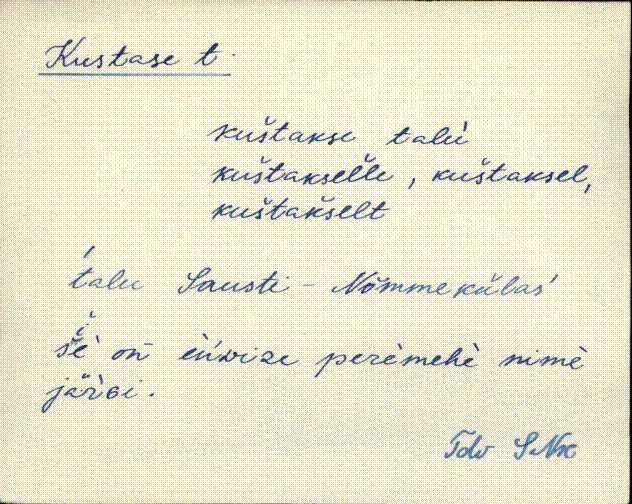 Kustase t.
kuštakse talu
kuštakselle, kuštaksel,
kuštakselt
talu Sausti - Nõmmekülas
še on eńvize peremehe nime
järei.
Tdv SNk